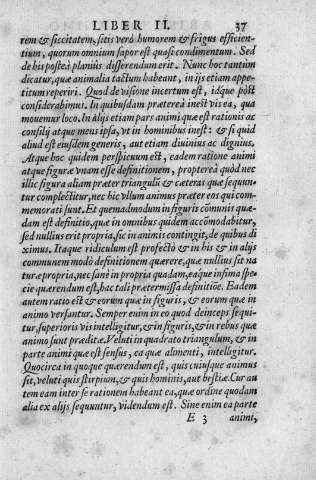 LIBER II. 37
rem & siccitatem, sitis verò humorem & frigus efficien-
tium, quorum omnium sapor est quasi condimentum. Sed
de his posteà planiùs disserendum erit. Nunc hoc tantùm
dicatur, quæ animalia tactum habeant, in ijs etiam appe-
titum reperiri. Quod de visione incertum est, idq́ue póst
considerabimus. In quibusdam prætereà inest vis ea, qua
mouemur loco. In alijs etiam pars animi quæ est rationis ac
consilij atque mens ipsa, vt in hominibus inest: & si quid
aliud est eiusdem generis, aut etiam diuinius ac dignius.
Atque hoc quidem perspicuum est, eadem ratione animi
atque figuræ vnam esse definitionem, proptereà quòd nec
illic figura aliam præter triangulũ & cæteras quæ sequun-
tur complectitur, nec hîc vllum animus præter eos qui com-
memorati sunt. Et quemadmodum in figuris cõmunis quæ-
dam est definitio, quæ in omnibus quidem accõmodabitur,
sed nullius erit propria, sic in animis contingit, de quibus di
ximus. Itaque ridiculum est profectò & in his & in alijs
communem modò definitionem quærere, quæ nullius sit na
turæ propria, nec sanè in propria quadam, eáque infima spe-
cie quærendum est, hac tali prætermissa definitiõe. Eadem
autem ratio est & eorum quæ in figuris, & eorum quæ in
animo versantur. Semper enim in eo quod deinceps sequi-
tur, superioris vis intelligitur, & in figuris, & in rebus quæ
animo sunt præditæ. Veluti in quadrato triangulum, & in
parte animi quæ est sensus, ea quæ alimenti, intelligitur.
Quocirca in quoque quærendum est, quis cuiusque animus
sit, veluti quis stirpium, & quis hominis, aut bestiæ. Cur au
tem eam inter se rationem habeant ea, quæ ordine quodam
alia ex alijs sequuntur, videndum est. Sine enim ea parte
E 3 animi,